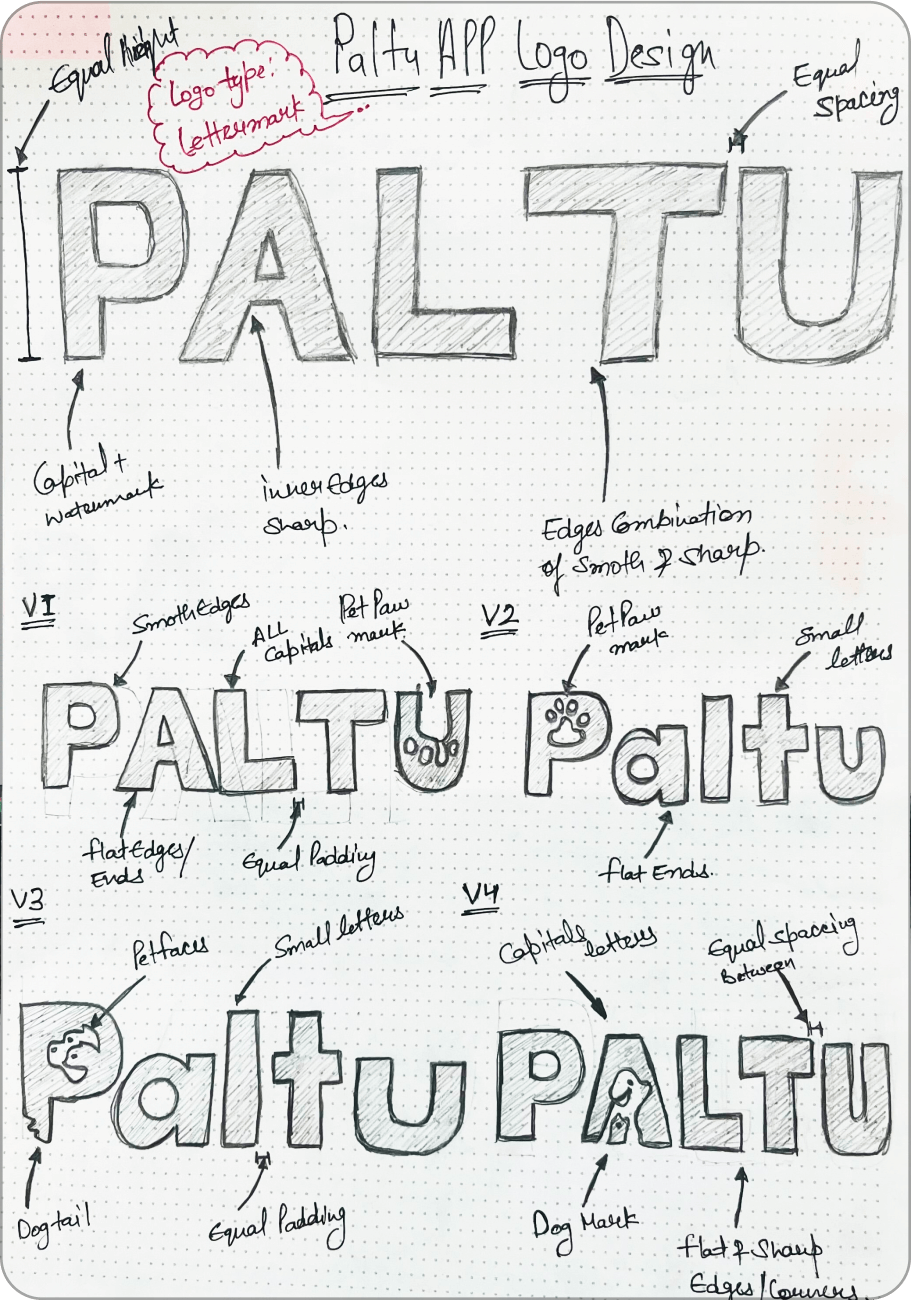 Paltu APP Logo Design
Equal Height
Logo type:
Lettermark
Equal
Spacing
PALTU
Capital +
Watermark
inner Edges
Sharp.
Edges Combination
of Smoth & Sharp.
V1
Smoth Edges
ALL
Capitals
Pet Paw
mark
PALTU
flat Edges/
Ends
Equal Padding
V2
Pet Paw
mark
Small
letters
Paltu
flat Ends.
V3
Pet faces
Small letters
Paltu
Dog tail
Equal Padding
V4
Capitals letters
Equal Spaceing
Between
PALTU
Dog Mark
flat & Sharp
Edges/Corners.